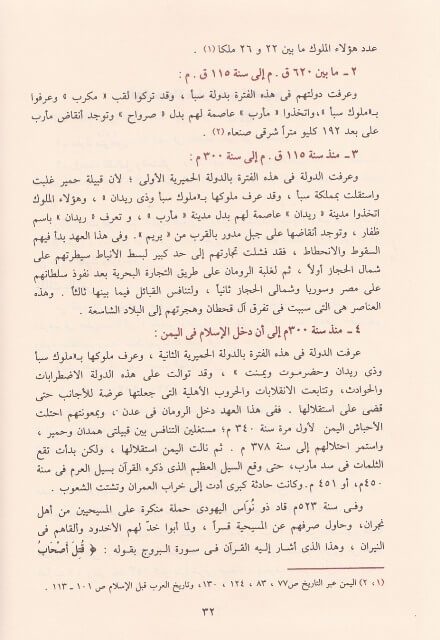 عدد هؤلاء الملوك ما بين ٢٢ و ٢٦ ملكا (١) .
٢ ـ ما بين ٦٢٠ ق . م إلى سنة ١١٥ ق . م :
وعرفت دولتهم فى هذه الفترة بدولة سبأ ، وقد تركوا لقب « مكرب » وعرفوا
بـ«ملوك سبأ» ،واتخذوا « مأرب » عاصمة لهم بدل « صرواح » وتوجد أنقاض مأرب
على بعد ١٩٢ كليو متراً شرقى صنعاء (٢) .
٣ ـ منذ سنة ١١٥ ق . م إلى سنة ٣٠٠ م :
وعرفت الدولة فى هذه الفترة بالدولة الحميرية الأولى ؛ لأن قبيلة حمير غلبت
واستقلت بمملكة سبأ ، وقد عرف ملوكها بـ«ملوك سبأ وذى ريدان » ، وهؤلاء الملوك
اتخذوا مدينة « ريدان » عاصمة لهم بدل مدينة « مأرب » ، و تعرف « ريدان » باسم
ظفار ، وتوجد أنقاضها على جبل مدور بالقرب من « يريم» . وفى هذا العهد بدأ فيهم
السقوط والانحطاط ، فقد فشلت تجارتهم إلى حد كبير لبسط الأنباط سيطرتهم على
شمال الحجاز أولاً ، ثم لغلبة الرومان على طريق التجارة البحرية بعد نفوذ سلطانهم
على مصر وسوريا وشمالى الحجاز ثانياً ، ولتنافس القبائل فيما بينها ثالثاً . وهذه
العناصر هى التى سببت فى تفرق آل قحطان وهجرتهم إلى البلاد الشاسعة .
٤ ـ منذ سنة ٣٠٠م إلى أن دخل الإسلام فى اليمن :
عرفت الدولة فى هذه الفترة بالدولة الحميرية الثانية ، وعرف ملوكها بـ«ملوك سبأ
وذى ريدان وحضرموت ويمنت » ، وقد توالت على هذه الدولة الاضطرابات
والحوادث، وتتابعت الانقلابات والحروب الأهلية التى جعلتها عرضة للأجانب حتى
قضى على استقلالها . ففى هذا العهد دخل الرومان فى عدن ، وبمعونتهم احتلت
الأحباش اليمن لأول مرة سنة ٣٤٠ م؛ مستغلين التنافس بين قبيلتى همدان وحمير ،
واستمر احتلالهم إلى سنة ٣٧٨ م . ثم نالت اليمن استقلالها ، ولكن بدأت تقع
الثلمات فى سد مأرب، حتى وقع السيل العظيم الذى ذكره القرآن بسيل العرم فى سنة
٤٥٠م، أو ٤٥١ م.وكانت حادثة كبرى أدت إلى خراب العمران وتشتت الشعوب .
وفى سنة ٥٢٣م قاد ذو نُوَاس اليهودى حملة منكرة على المسيحيين من أهل
نجران، وحاول صرفهم عن المسيحية قسراً ، ولما أبوا خدّ لهم الأخدود وألقاهم فى
النيران ، وهذا الذى أشار إليه القرآن فى سورة البروج بقوله : ﴿ قُتِلَ أَصْحَابُ
(١ ، ٢) اليمن عبر التاريخ ص٧٧ ، ٨٣ ، ١٢٤ ، ١٣٠، وتاريخ العرب قبل الإسلام ص ١٠١ ـ ١١٣ .
٣٢